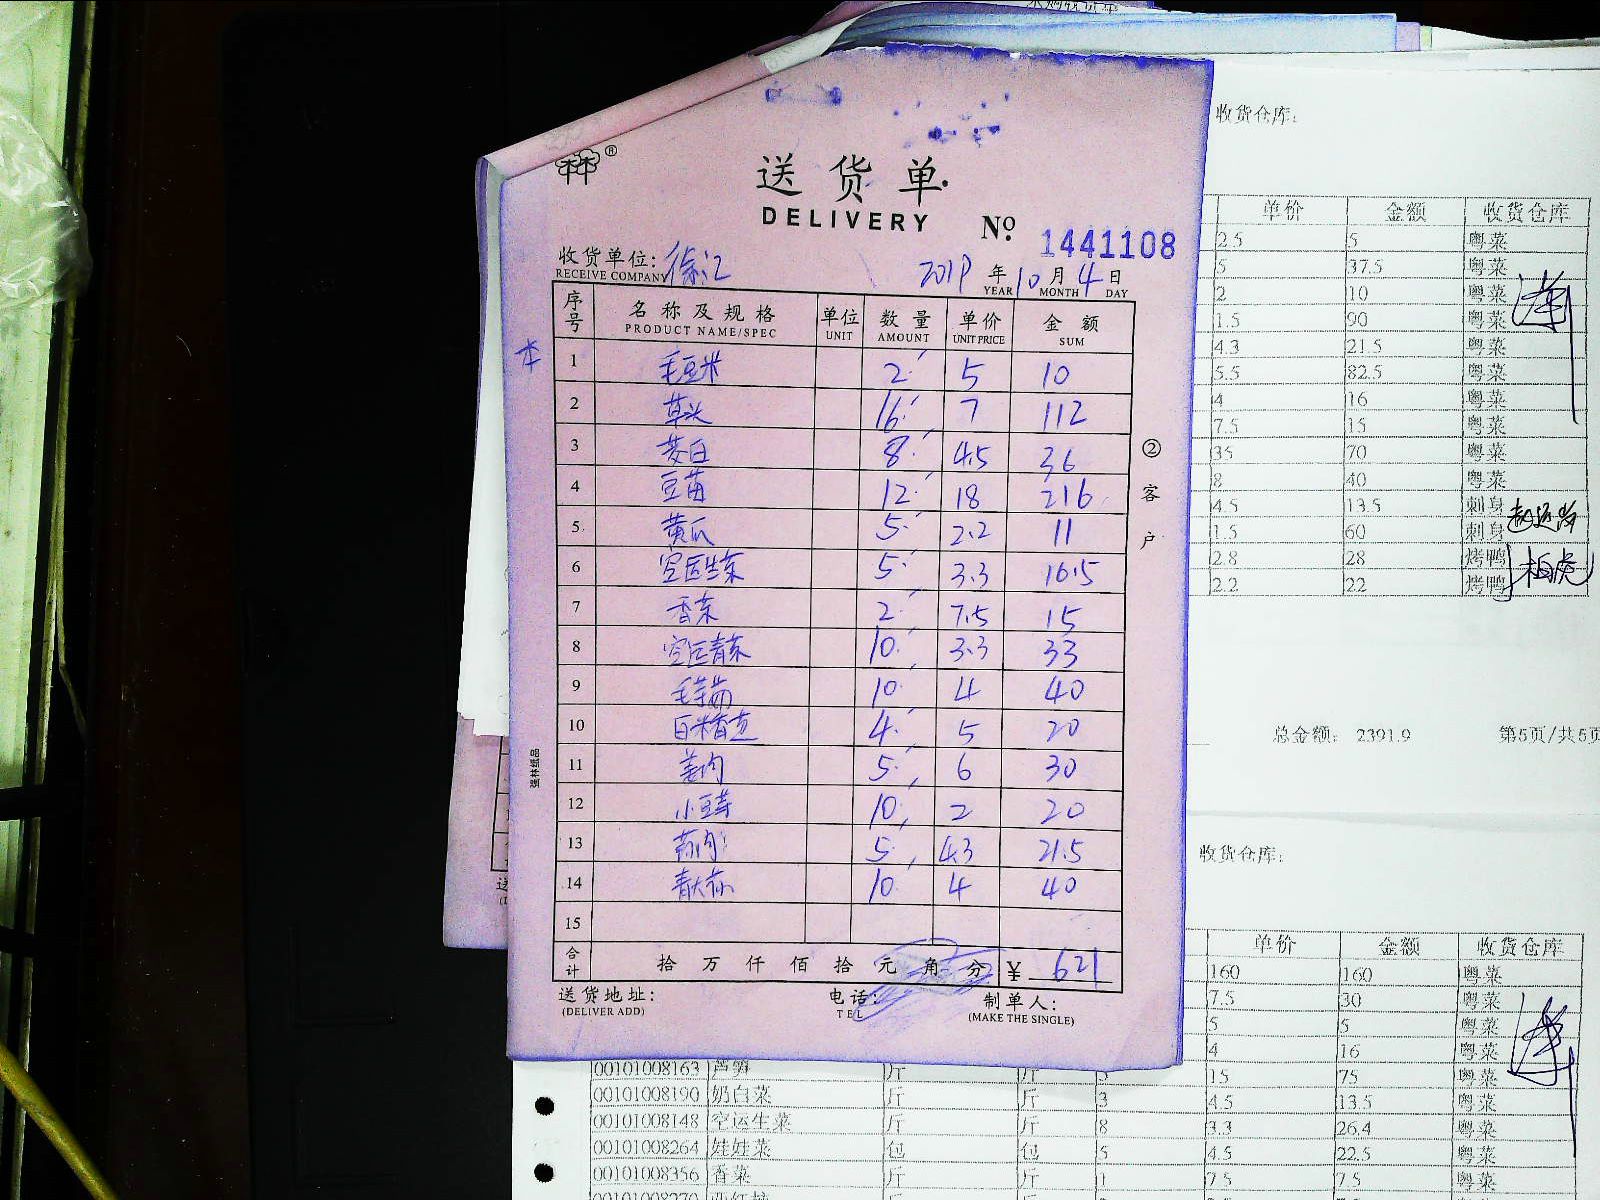 送货单
DELIVERY
No. 1441108
收货单位: 徐汇
RECEIVE COMPANY
2019 年 10 月 4 日
YEAR MONTH DAY
序号 名称及规格 单位 数量 单价 金额
PRODUCT NAME/SPEC UNIT AMOUNT UNIT PRICE SUM
本
1 毛豆米 2 5 10
2 草头 16 7 112
3 茭白 8 4.5 36
4 豆苗 12 18 216
5 黄瓜 5 2.2 11
6 空运生菜 5 3.3 16.5
7 香菜 2 7.5 15
8 空运青菜 10 3.3 33
9 毛芋艿 10 4 40
10 白米香芝 4 5 20
11 姜肉 5 6 30
12 小豆芽 10 2 20
13 蒜肉 5 4.3 21.5
14 青大蒜 10 4 40
15
合计 拾 万 仟 佰 拾 元 角 分 ¥ 621
送货地址: 电话: 制单人:
(DELIVER ADD) TEL (MAKE THE SINGLE)
②客户
强林纸品
收货仓库:
单价 金额 收货仓库
2.5 5 粤菜
5 37.5 粤菜
2 10 粤菜
1.5 90 粤菜
4.3 21.5 粤菜
5.5 82.5 粤菜
4 16 粤菜
7.5 15 粤菜
35 70 粤菜
8 40 粤菜
4.5 13.5 刺身
1.5 60 刺身
2.8 28 烤鸭
2.2 22 烤鸭
总金额: 2391.9 第5页/共5页
收货仓库:
单价 金额 收货仓库
160 160 粤菜
7.5 30 粤菜
5 5 粤菜
4 16 粤菜
00101008163 芦笋 斤 斤 5 15 75 粤菜
00101008190 奶白菜 斤 斤 3 4.5 13.5 粤菜
00101008148 空运生菜 斤 斤 8 3.3 26.4 粤菜
00101008264 娃娃菜 包 包 5 4.5 22.5 粤菜
00101008356 香菜 斤 斤 1 7.5 7.5 粤菜